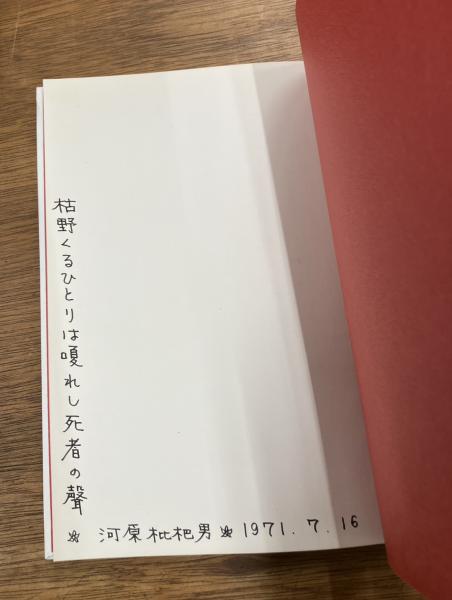 枯野くるひとりは嗄れし死者の聲
☆ 河原枇杷男☆1971.7.16